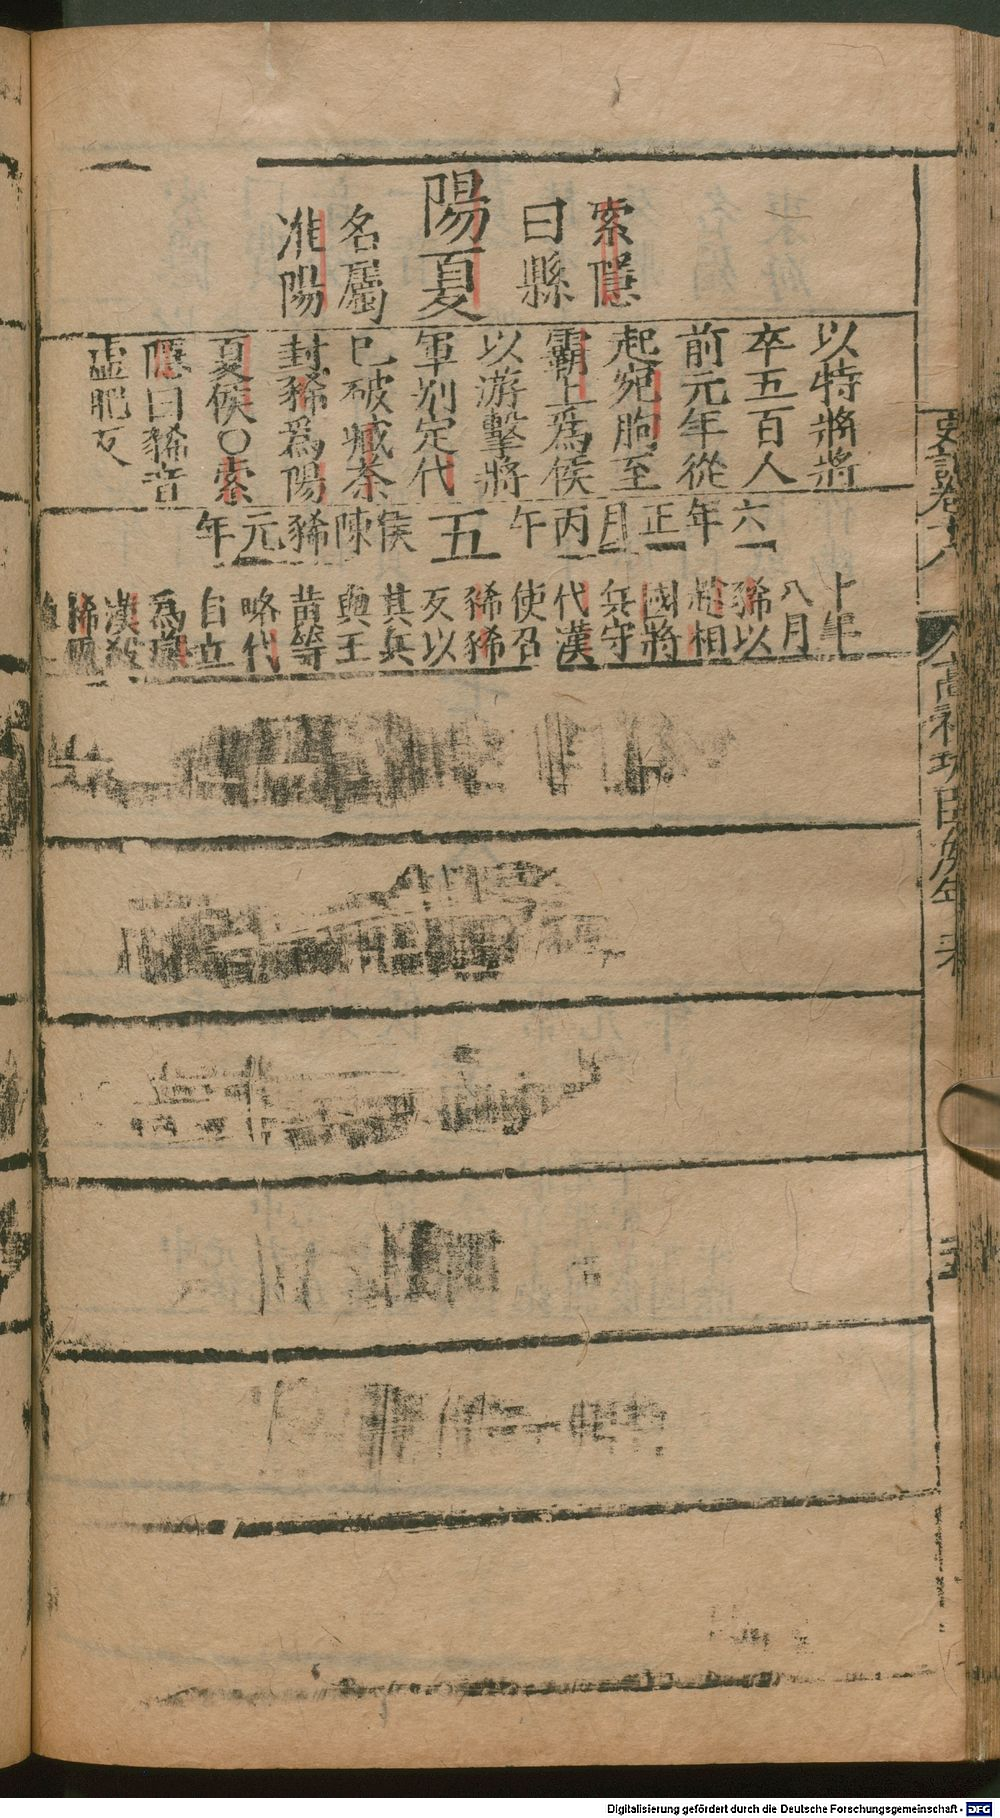 索隱
曰縣
陽夏
名屬
淮陽
以特將將
卒五百人
前元年從
起宛朐至
霸上爲侯
以游擊將
軍别定代
已破臧荼
封豨爲陽
夏侯〇索
隱曰豨音
虛肥反
六
年
正
月
丙
午
五
侯
陳
豨
元
年
十年
八月
豨以
趙相
國將
兵守
代漢
使召
豨豨
反以
其兵
與王
黄等
略代
自立
爲
漢殺
豨
史記卷十八
高祖功臣侯年表
Digitalisierung gefördert durch die Deutsche Forschungsgemeinschaft - DFG